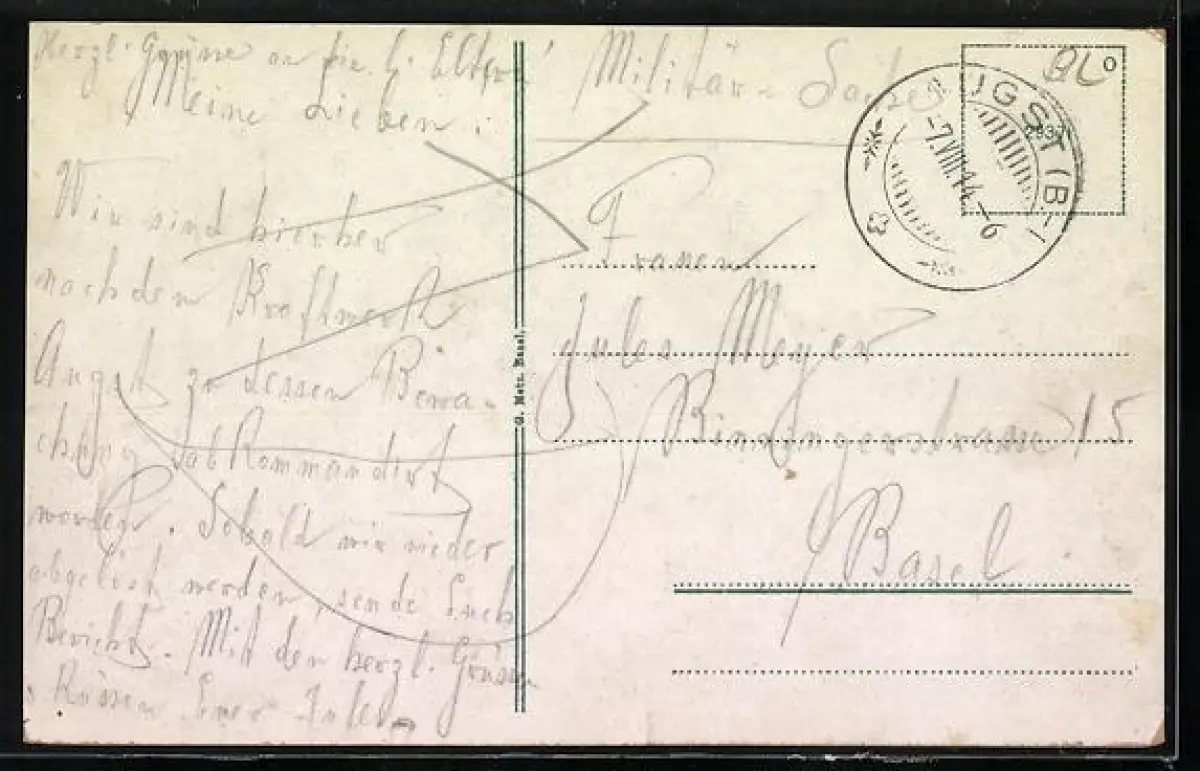 Herzl. Grüsse an die l. Eltern
Meine Lieben!
Wir sind hierher
nach dem Kraftwerk
Augst zu dessen Bewa-
chung abkommandirt
worden. Sobald wir wieder
abgelöst werden, sende Euch
Bericht. Mit den herzl. Grüssen
u. Küssen Euer Jules
G. Metz, Basel.
Militär-Sache
BL
UGST (B
-7.VIII.14.-6
Frauen
Jules Meyer
Binningerstrasse 15
Basel